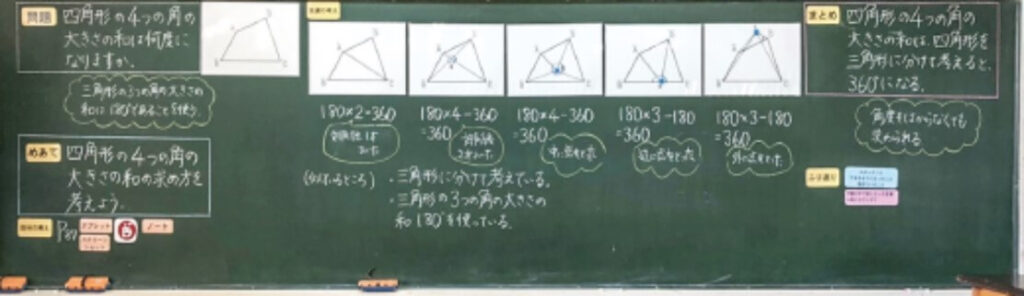 問題
四角形の4つの角の
大きさの和は何度に
なりますか。
三角形の3つの角の大きさの
和は180°であることを使う
めあて
四角形の4つの角の
大きさの和の求め方を
考えよう。
自分の考え
P87
タブレット
ノート
友達の考え
180×2=360
対角線は
180×4-360
=360
対角線
180×4-360
=360
180×3-180
=360
180×3-180
=360
(似ているところ)
・三角形に分けて考えている。
・三角形の3つの角の大きさの
和180°を使っている。
まとめ
四角形の4つの角の
大きさの和は、四角形を
三角形に分けて考えると、
360°になる。
角度をはからなくても
求められる
ふり返り